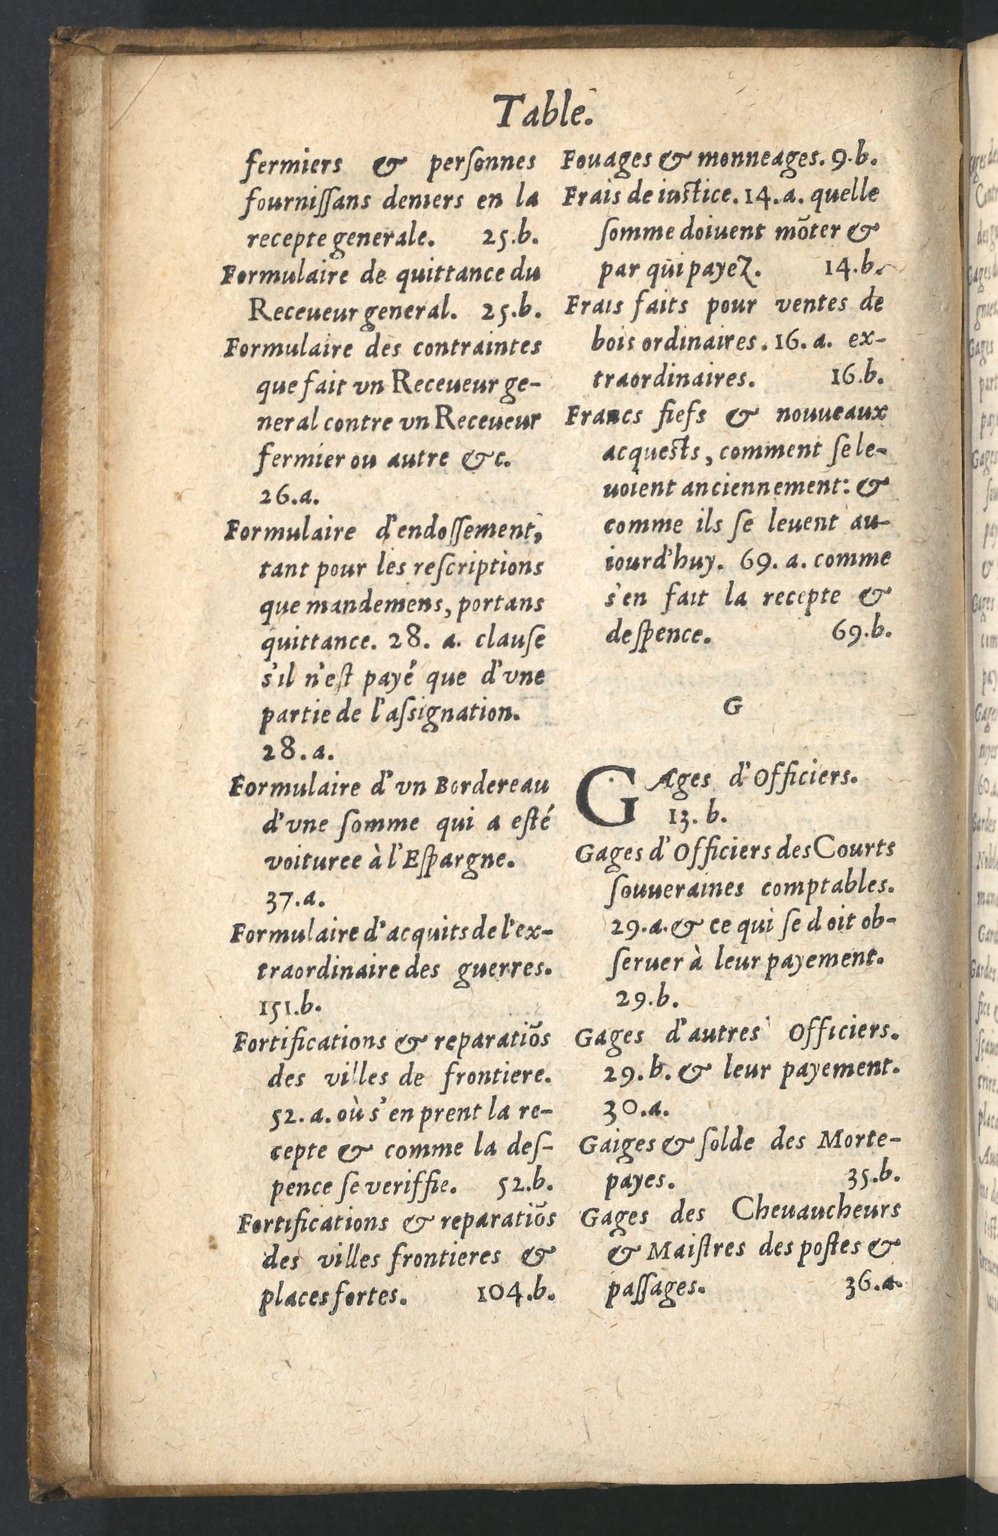 Table.
fermiers & perſonnes
fourniſſans deniers en la
recepte generale. 25.b.
Formulaire de quittance du
Receueur general. 25.b.
Formulaire des contraintes
que fait vn Receueur ge-
neral contre vn Receueur
fermier ou autre &c.
26.a.
Formulaire d'endoſſement,
tant pour les reſcriptions
que mandemens, portans
quittance. 28. a. clauſe
s'il n'eſt payé que d'vne
partie de l'aſsignation.
28.a.
Formulaire d'vn Bordereau
d'vne ſomme qui a eſté
voituree à l'Eſpargne.
37.a.
Formulaire d'acquits de l'ex-
traordinaire des guerres.
151.b.
Fortifications & reparatiõs
des villes de frontiere.
52.a. où s'en prent la re-
cepte & comme la deſ-
pence ſe veriffie. 52.b.
Fortifications & reparatiõs
des villes frontieres &
places fortes. 104.b.
Fouages & monneages. 9.b.
Frais de iuſtice. 14.a. quelle
ſomme doiuent mõter &
par qui payeZ. 14.b.
Frais faits pour ventes de
bois ordinaires. 16. a. ex-
traordinaires. 16.b.
Francs fiefs & nouueaux
acqueſts, comment ſe le-
uoient anciennement: &
comme ils ſe leuent au-
iourd'huy. 69. a. comme
s'en fait la recepte &
deſpence. 69.b.
G
GAges d'Officiers.
13. b.
Gages d'Officiers des Courts
ſouueraines comptables.
29.a. & ce qui ſe doit ob-
ſeruer à leur payement.
29.b.
Gages d'autres Officiers.
29.b. & leur payement.
30.a.
Gaiges & ſolde des Morte-
payes. 35.b.
Gages des Cheuaucheurs
& Maiſtres des poſtes &
paſſages. 36.a.